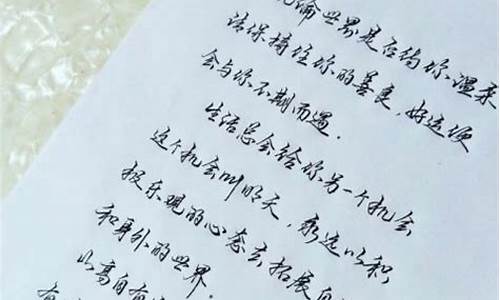 论世界是否给你温柔
请保持住你的善良，好运便
会与你不期而遇．
生活总会给你另一个机会
这个机会叫明天，永远以积
极乐观的心态去拓展自
和身外的世界．
此高自有
有